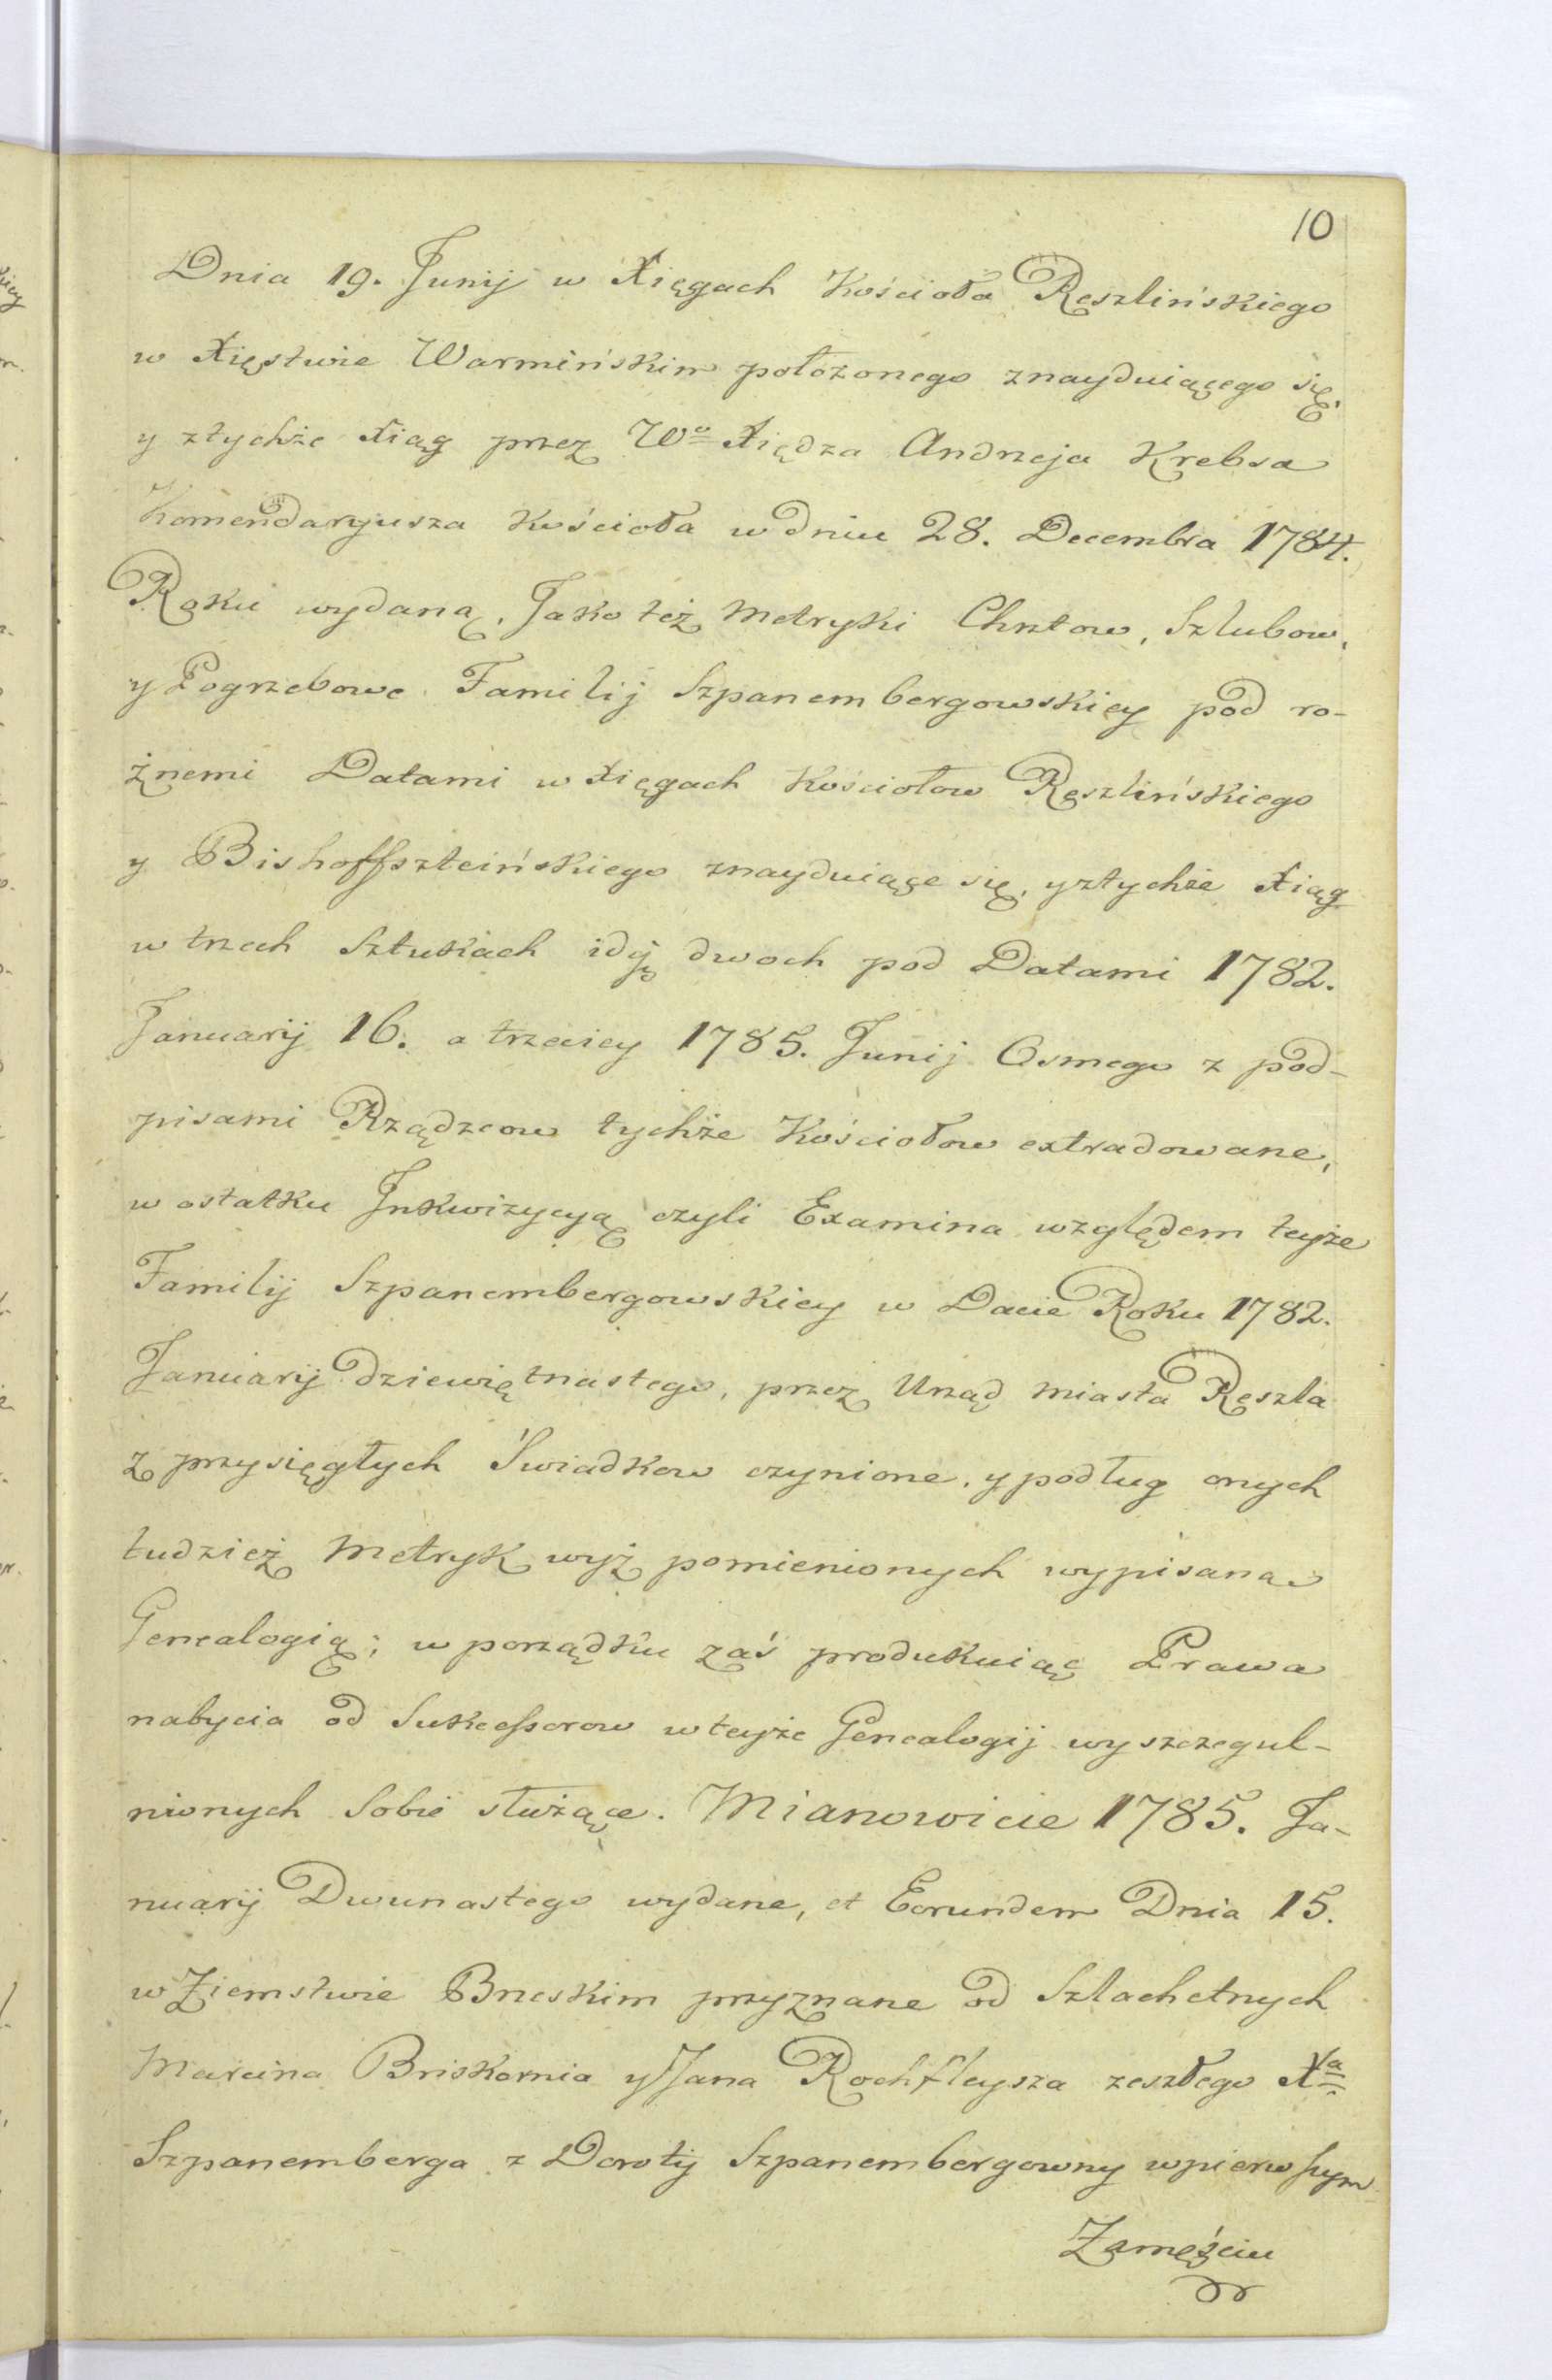 10
Dnia 19. Junij w Xięgach Kościoła Reszlińskiego
w Xięstwie Warmińskim położonego znayduiącego się,
y ztychże Xiąg przez Wo Xiędza Andrzeja Krebsa
Komendaryusza Kościoła w dniu 28. Decembra 1784.
Roku wydaną, Jako też Metryki Chrztow, Szlubow,
y Pogrzebowe Familij Szpanembergowskiey pod ro-
żnemi Datami w Xięgach Kościołow Reszlińskiego
y Bishoffszteińskiego znayduiące się, y ztychże Xiąg
w trzech Sztukach idq̃ dwoch pod Datami 1782.
Januarij 16. a trzeciey 1785. Junij Osmego z pod-
pisami Rządzcow tychże Kościołow extradowane,
w ostatku Inkwizycyą czyli Examina względem teyże
Familij Szpanembergowskiey w Dacie Roku 1782.
Januarij dziewiętnastego, przez Urząd Miasta Reszla
z przysięgłych Świadkow czynione, y podług onych
tudzież Metryk wyż pomienionych wypisana
Genealogią; w porządku zaś produkuiąc Prawa
nabycia od Sukcessorow w teyże Genealogij wyszczegul-
nionych Sobie służące. Mianowicie 1785. Ja-
nuarij Dwunastego wydane, et Eorundem Dnia 15.
w Ziemstwie Brzeskim przyznane od Szlachetnych
Marcina Briskornia y Jana Rochfleysza zeszłego Xa
Szpanemberga z Doroty Szpanembergowny w pierwszym
Zamęściu